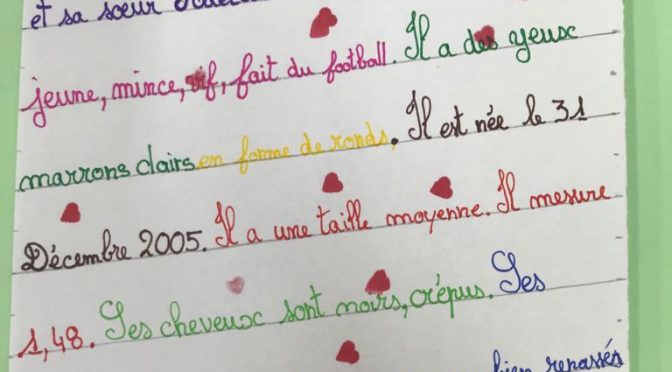 et sa sœur
jeune, mince, vif, fait du football. Il a des yeux
marrons clairs en forme de ronds. Il est née le 31
Décembre 2005. Il a une taille moyenne. Il mesure
1,48. Ses cheveux sont noirs, crépus. Ses
bien repassés